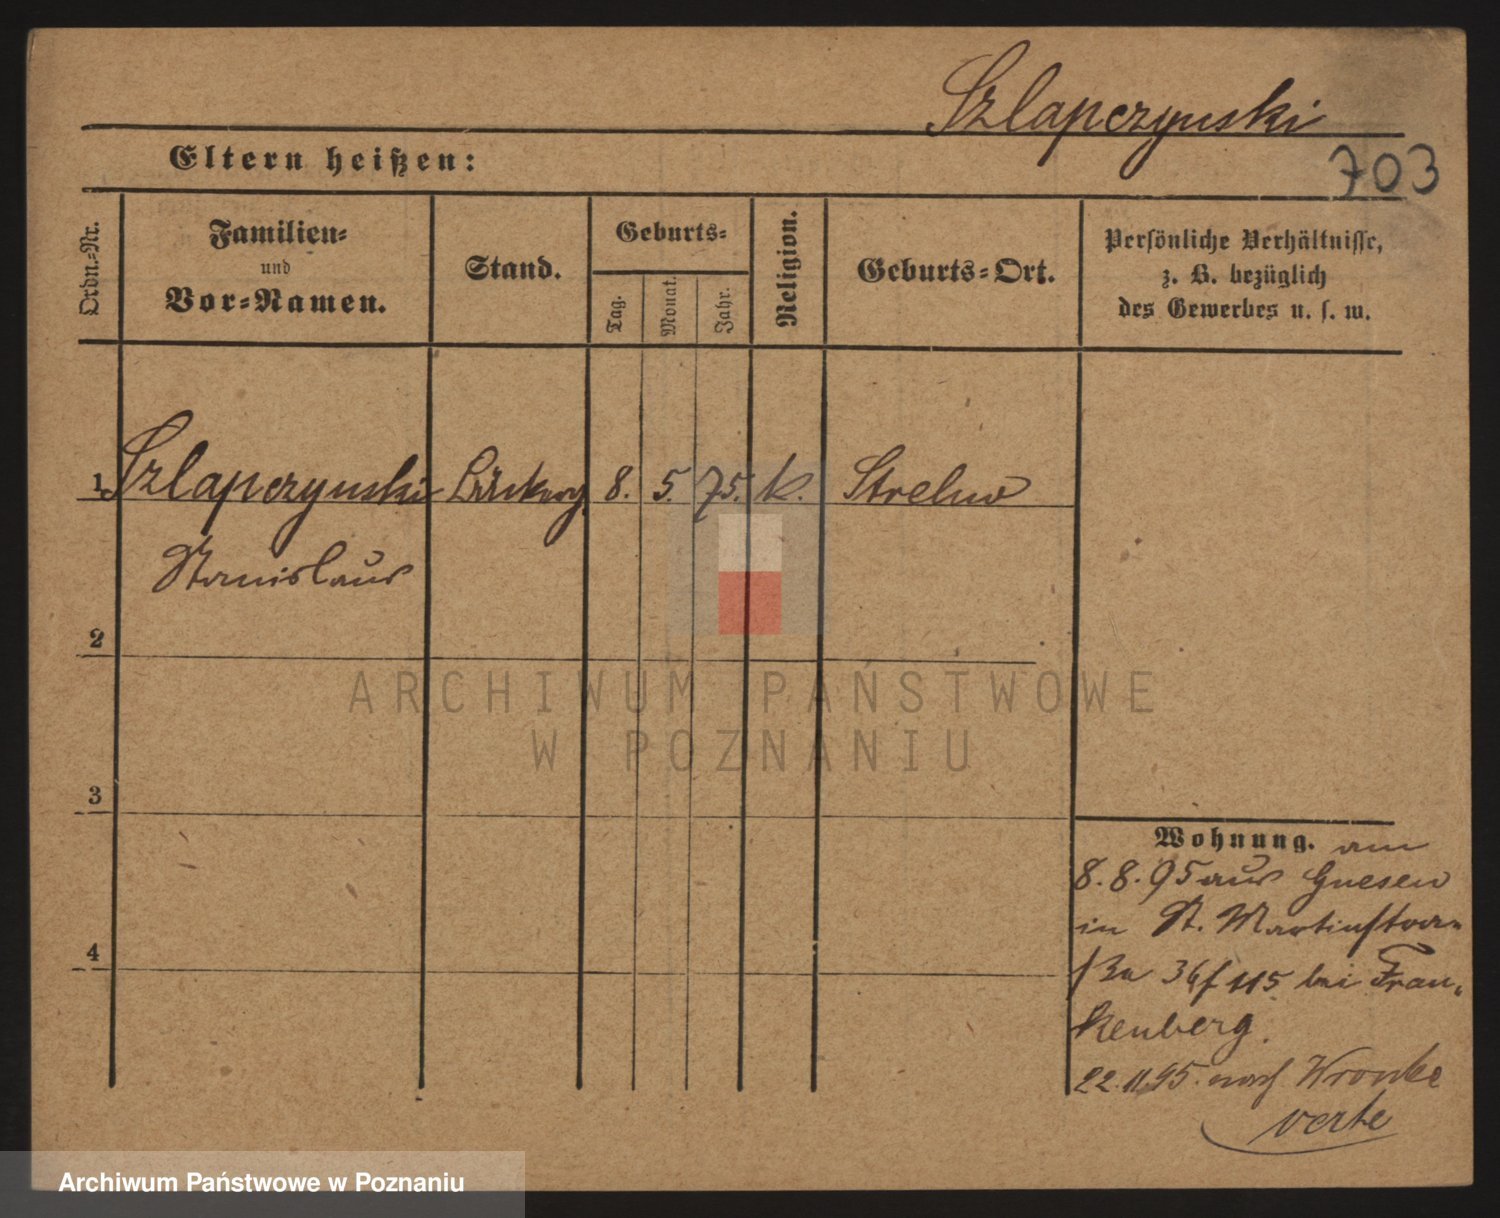 Szlapczynski
703
Eltern heißen:
Ordn.-Nr.
Familien-
und
Vor-Namen.
Stand.
Geburts-
Tag.
Monat.
Jahr.
Religion.
Geburts-Ort.
Persönliche Verhältnisse,
z. B. bezüglich
des Gewerbes u. s. w.
1 Szlapczynski 8. 5. 75. k. Strelno
Stanislaus
2
3
4
ARCHIWUM PAŃSTWOWE
W POZNANIU
Wohnung. am
8.8.95 aus Gnesen
in St. Martinstra-
ße 36/115 bei Fran-
kenberg.
22.11.95. nach Wronke
verte
Archiwum Państwowe w Poznaniu